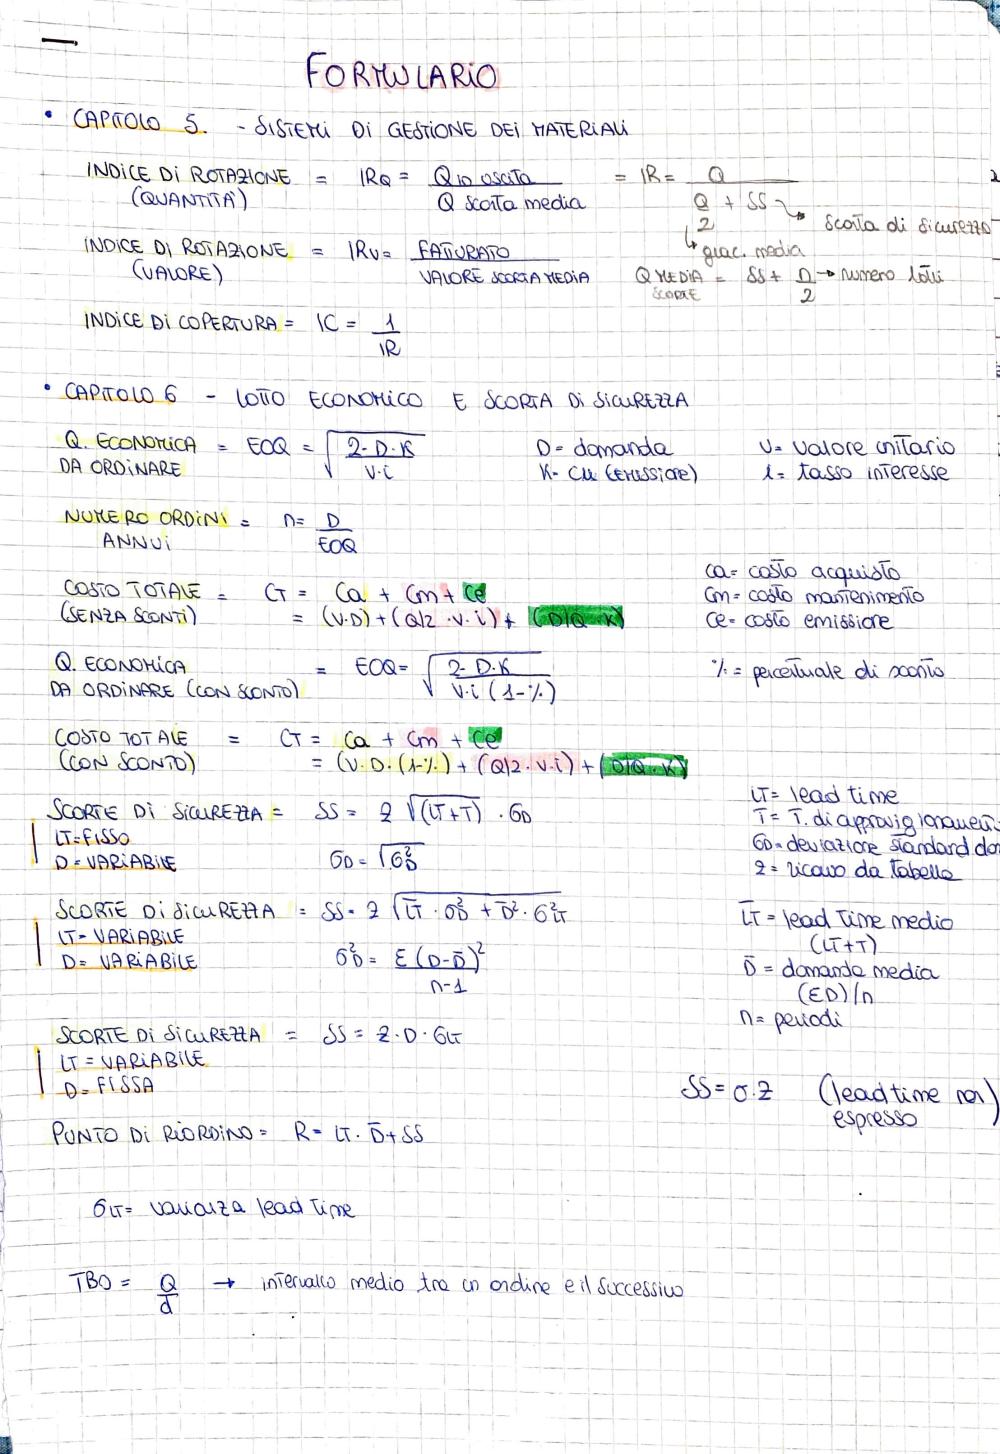 FORMULARIO
• CAPITOLO 5. - SISTEMI DI GESTIONE DEI MATERIALI
INDICE DI ROTAZIONE = IRQ = Q in uscita / Q scorta media = IR = Q / (Q/2 + SS) → scorta di sicurezza
(QUANTITÀ)
↳ giac. media
INDICE DI ROTAZIONE = IRv = FATTURATO / VALORE SCORTA MEDIA
(VALORE)
Q MEDIA SCORTE = SS + n/2 → numero lotti
INDICE DI COPERTURA = IC = 1/IR
• CAPITOLO 6 - LOTTO ECONOMICO E SCORTA DI SICUREZZA
Q. ECONOMICA = EOQ = √(2·D·K / v·i) D = domanda v = valore unitario
DA ORDINARE K = cu (emissione) i = tasso interesse
NUMERO ORDINI = n = D/EOQ
ANNUI
COSTO TOTALE = CT = Ca + Cm + Ce
(SENZA SCONTI) = (V·D) + (Q/2 · v · i) + (D/Q · K)
Ca = costo acquisto
Cm = costo mantenimento
Ce = costo emissione
Q. ECONOMICA = EOQ = √(2·D·K / v·i (1-%)) % = percentuale di sconto
DA ORDINARE (CON SCONTO)
COSTO TOTALE = CT = Ca + Cm + Ce
(CON SCONTO) = (V·D·(1-%)) + (Q/2 · v·i) + (D/Q · K)
SCORTE DI SICUREZZA = SS = z √(LT+T) · σD
LT = FISSO
D = VARIABILE σD = √σ²D
LT = lead time
T = T. di approvigionament
σD = deviazione standard do
z = ricavo da tabella
SCORTE DI SICUREZZA = SS = z √(L̅T̅ · σ²D + D̅² · σ²LT)
LT = VARIABILE
D = VARIABILE σ²D = Σ(D-D̅)² / n-1
L̅T̅ = lead time medio
(LT+T)
D̅ = domanda media
(ΣD)/n
n = periodi
SCORTE DI SICUREZZA = SS = z·D·σLT
LT = VARIABILE
D = FISSA
SS = σ·z (lead time non espresso)
PUNTO DI RIORDINO = R = LT · D̅ + SS
σLT = varianza lead time
TBO = Q/d → intervallo medio tra un ordine e il successivo